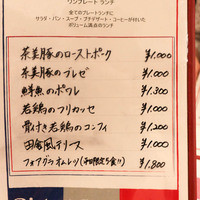 ワンプレート ランチ
全てのプレートランチに
サラダ・パン・スープ・プチデザート・コーヒーが付いた
ボリューム満点のランチ
茶美豚のローストポーク ¥1.000
茶美豚のブレゼ ¥1.000
鮮魚のポワレ ¥1.300
若鶏のフリカッセ ¥1.000
骨付き若鶏のコンフィ ¥1.200
田舎風テリーヌ ¥1.000
フォアグラオムレツ(平日限定5食!!) ¥1.800